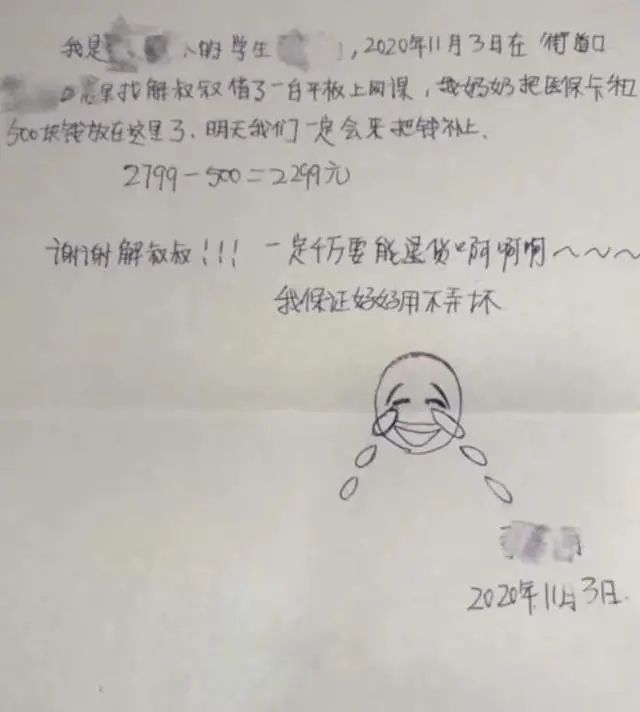 我是 的学生 ，2020年11月3日在 街
找解叔叔借了一台平板上网课，我奶奶把医保卡和
500块钱放在这里了，明天我们一定会来把钱补上.
2799-500=2299元
谢谢解叔叔!!! 一定千万要能退货啊啊啊~~~
我保证好好用不弄坏
2020年11月3日.